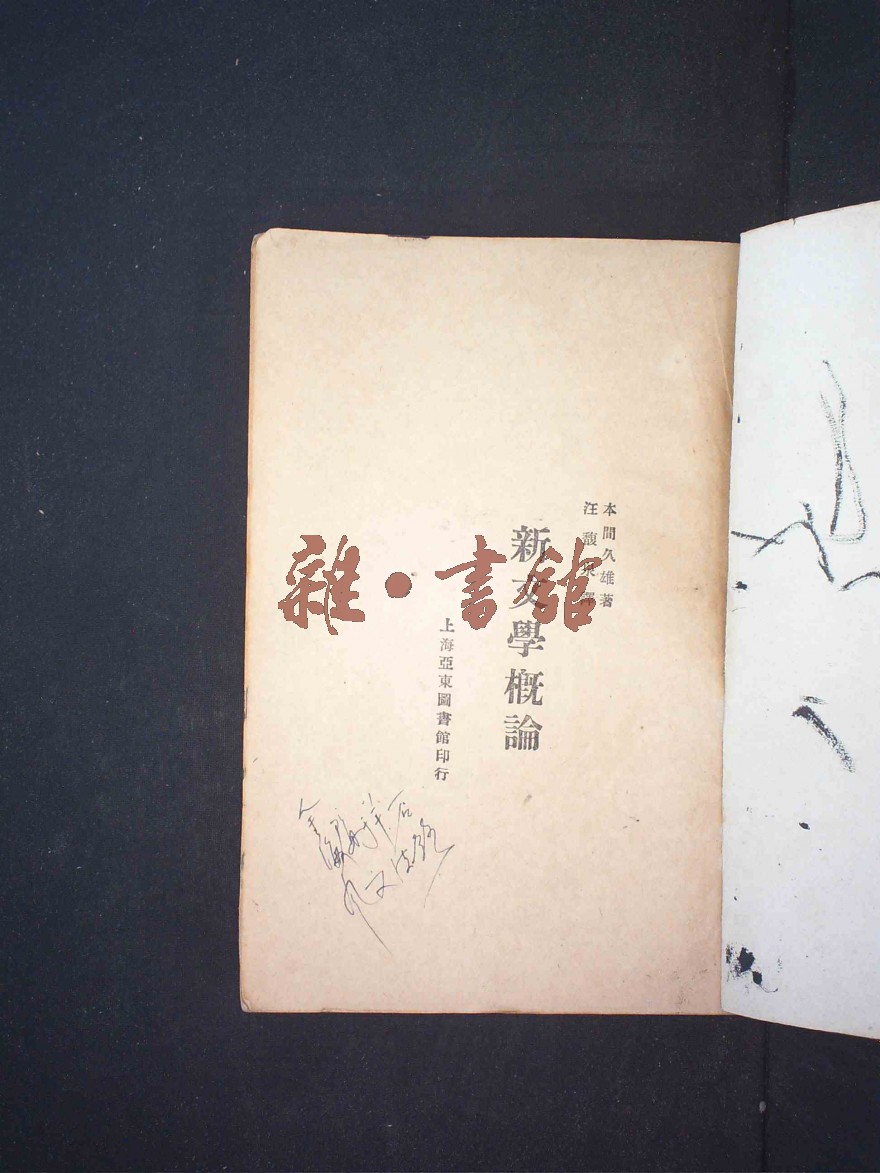 本間久雄著
汪馥泉譯
新文學概論
上海亞東圖書館印行
雜·書館